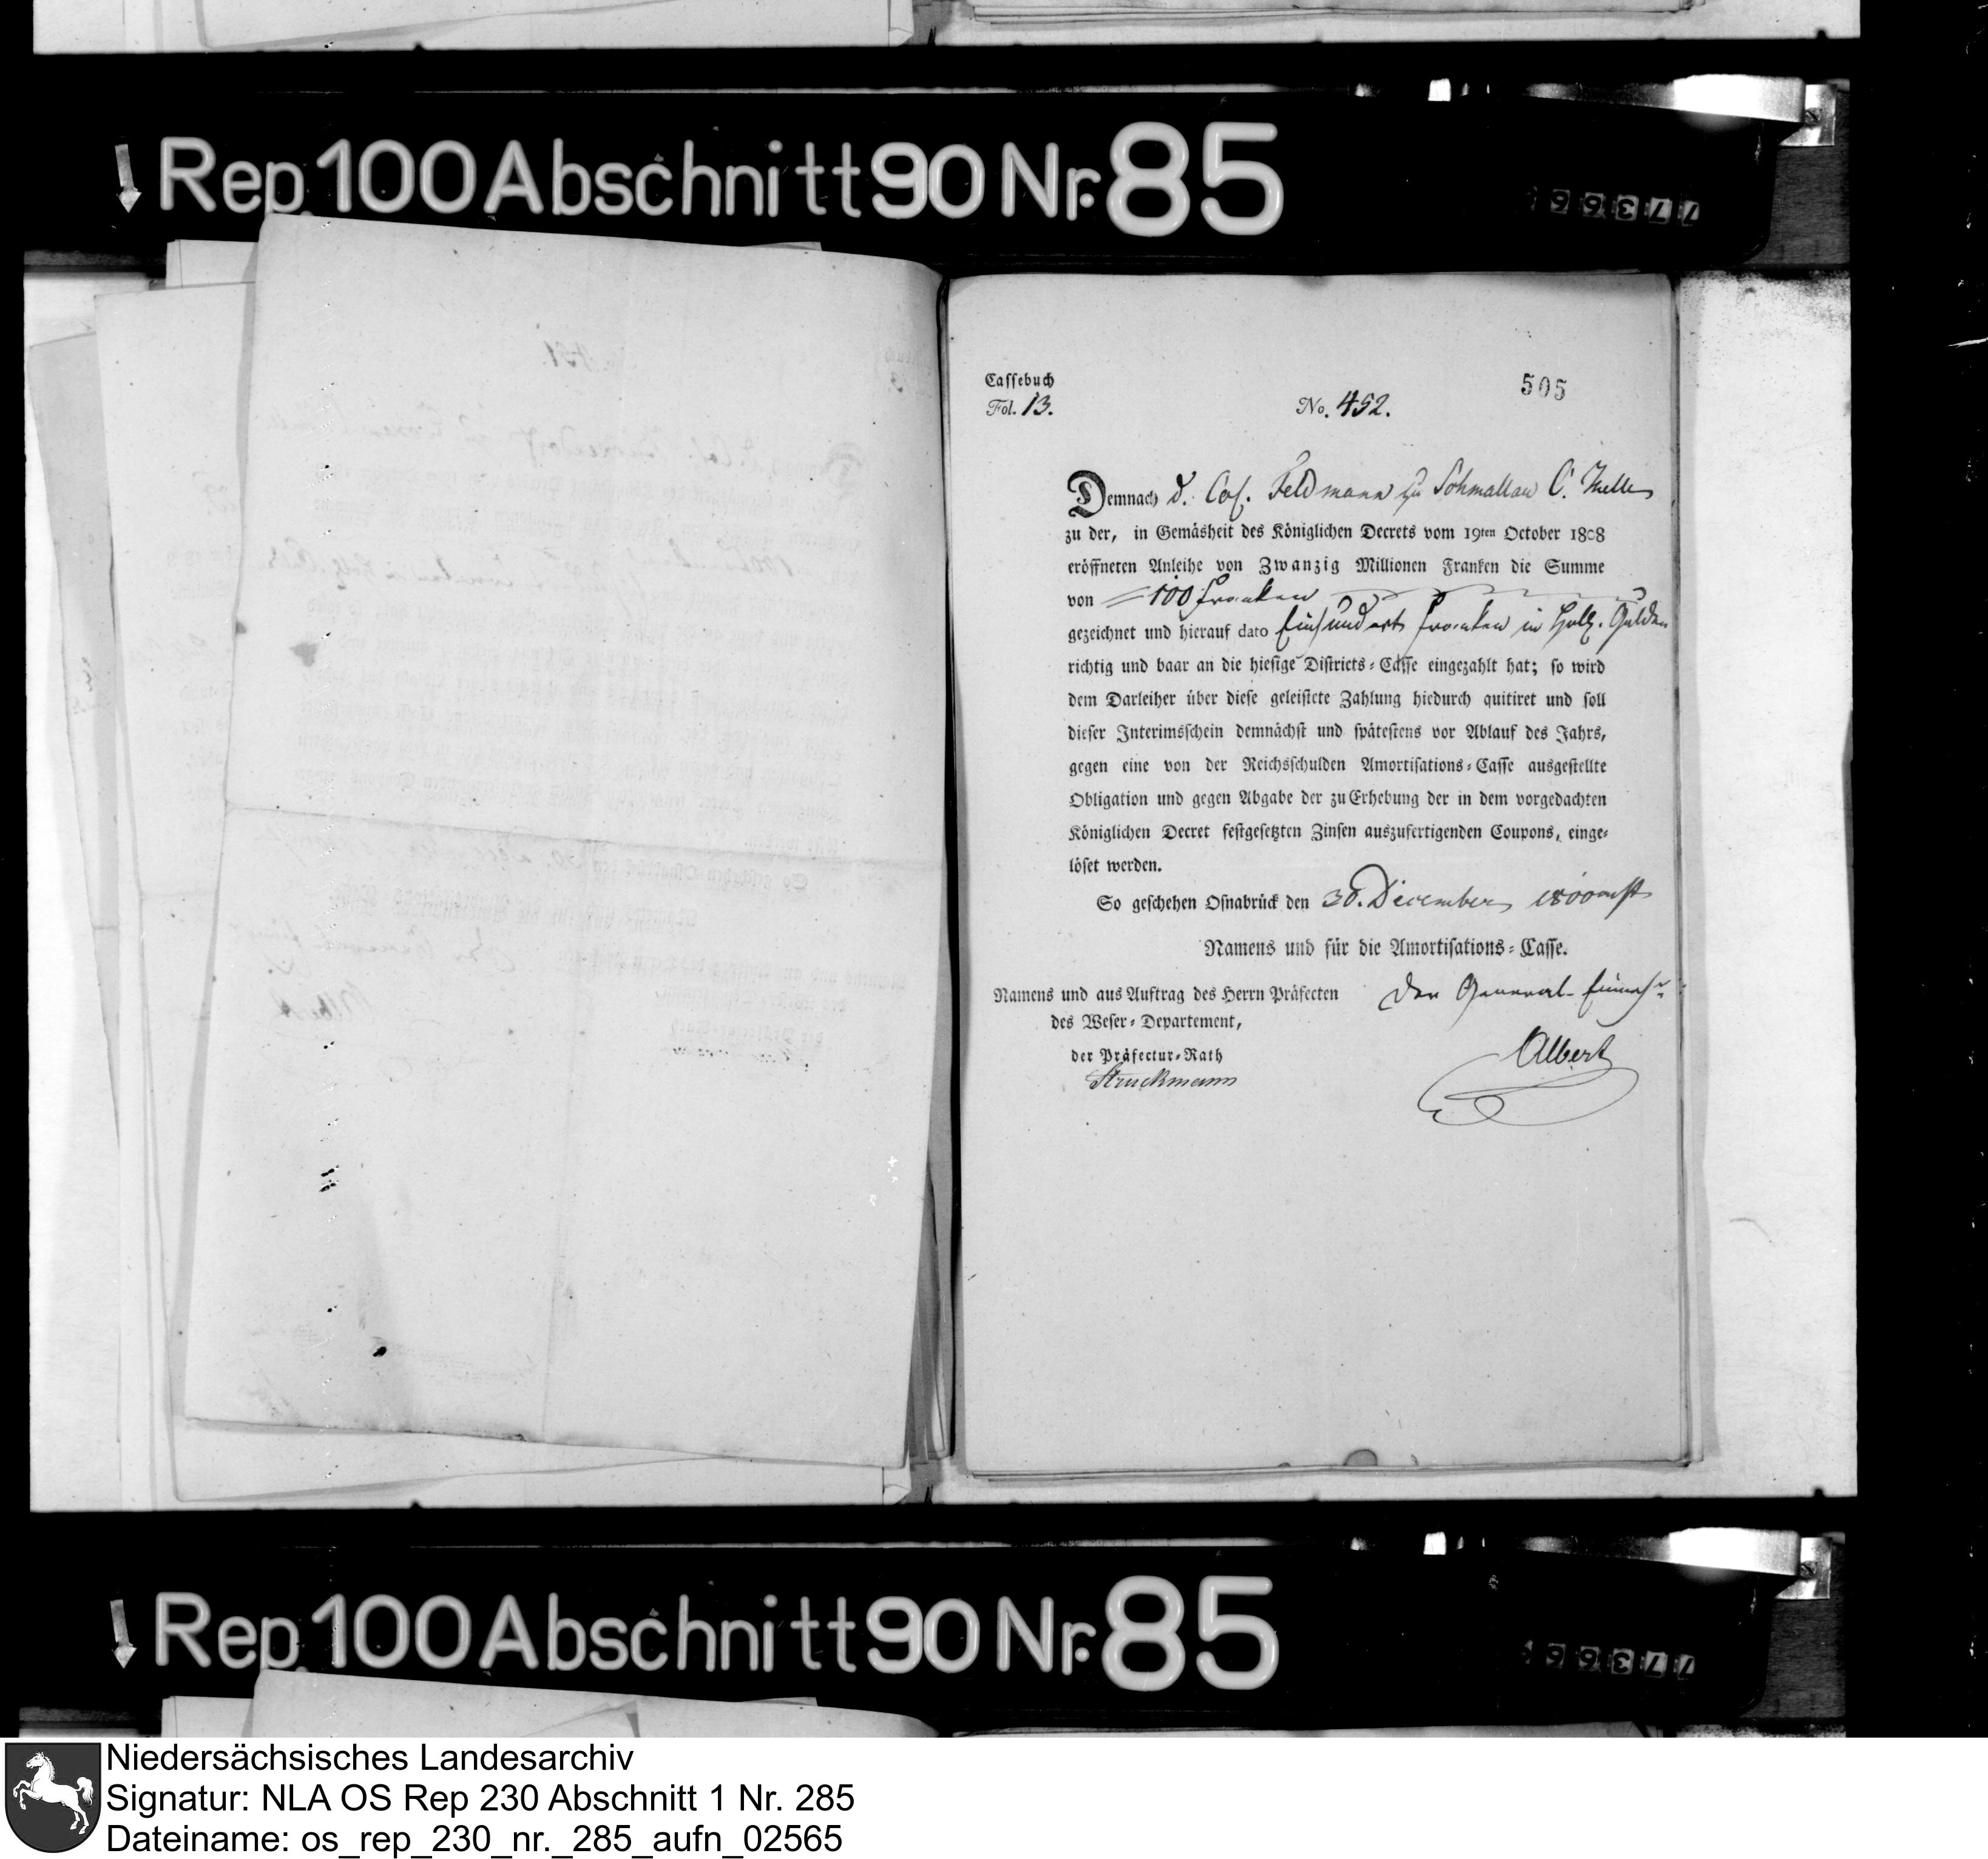 Rep. 100 Abschnitt 90 Nr. 85
Cassebuch
Fol. 13.
No. 452.
505
Demnach d. Col. Feldmann zu
zu der, in Gemäsheit des Königlichen Decrets vom 19ten October 1808
eröffneten Anleihe von Zwanzig Millionen Franken die Summe
von 100 Franken
gezeichnet und hierauf dato Einhundert Franken in Holl. Gulden
richtig und baar an die hiesige Districts-Casse eingezahlt hat; so wird
dem Darleiher über diese geleistete Zahlung hiedurch quitiret und soll
dieser Interimsschein demnächst und spätestens vor Ablauf des Jahrs,
gegen eine von der Reichsschulden Amortisations-Casse ausgestellte
Obligation und gegen Abgabe der zu Erhebung der in dem vorgedachten
Königlichen Decret festgesetzten Zinsen auszufertigenden Coupons, einge-
löset werden.
So geschehen Osnabrück den 30. December
Namens und für die Amortisations-Casse.
Namens und aus Auftrag des Herrn Präfecten
des Weser-Departement,
der Präfectur-Rath
Struckmann
Der General-
Albert
Rep. 100 Abschnitt 90 Nr. 85
Niedersächsisches Landesarchiv
Signatur: NLA OS Rep 230 Abschnitt 1 Nr. 285
Dateiname: os_rep_230_nr._285_aufn_02565